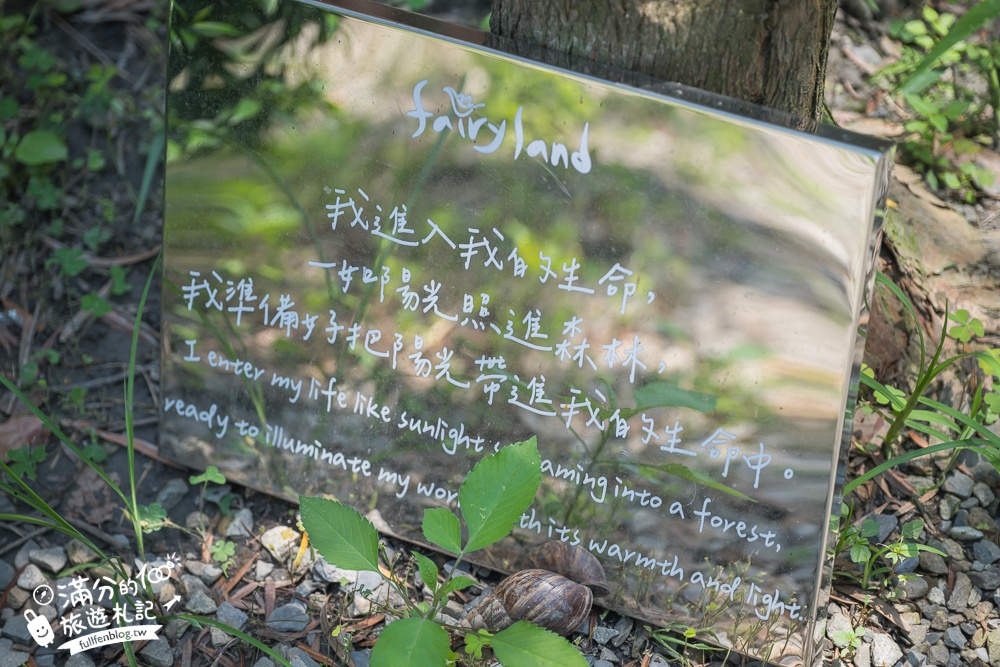 fairyland
我進入我的生命,
一如陽光照進森林,
我準備好把陽光帶進我的生命中。
I enter my life like sunlight aming into a forest,
ready to illuminate my wor th its warmth and light.
滿分的
旅遊札記
fullfenblog.tw